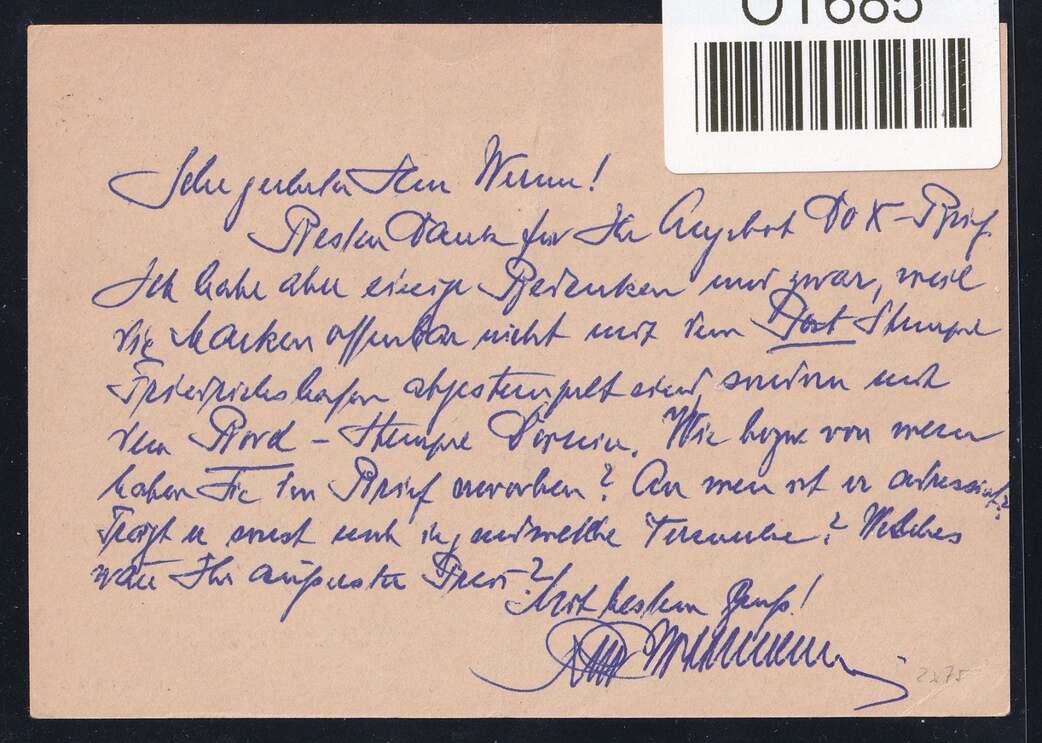 01685
Sehr geehrter Herr Werner!
Besten Dank für Ihr Angebot DO X-Brief.
Ich habe aber einige Bedenken und zwar, weil
die Marken offenbar nicht mit dem Post Stempel
Friedrichshafen abgestempelt sind, sondern mit
dem Bord-Stempel Dornier. Wie bezw von wem
haben Sie den Brief erworben? An wen ist er adressiert?
Trägt er sonst noch irgendwelche Vermerke? Welches
wäre Ihr äußerster Preis?
Mit bestem Gruß!